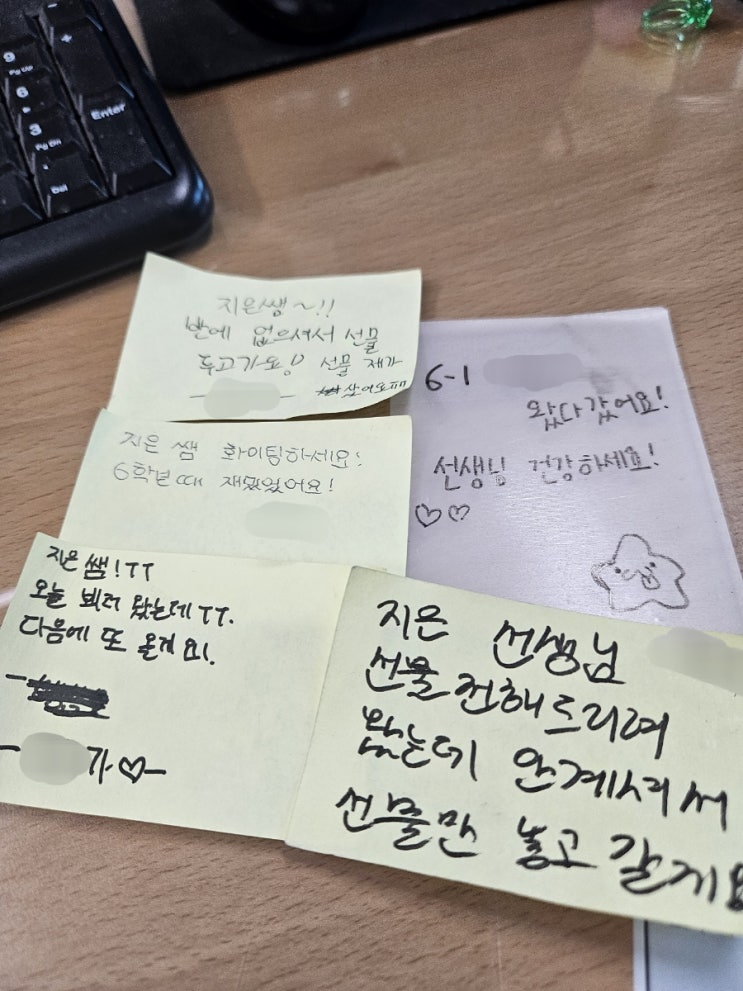 9
Pg Up
+
6
3
Pg Dn
Enter
Del
지은쌤~!!
반에 없으셔서 선물
두고가요! 선물 제가
지은 쌤 화이팅하세요!
6학년 때 재밌었어요!
6-1
왔다 갔어요!
선생님 건강하세요!
♡♡
지은 쌤!ㅜㅜ
오늘 뵈러 왔는데 ㅜㅜ.
다음에 또 올게요!.
가♡
지은 선생님
선물 전해드리려
왔는데 안계셔서
선물만 놓고 갈게요